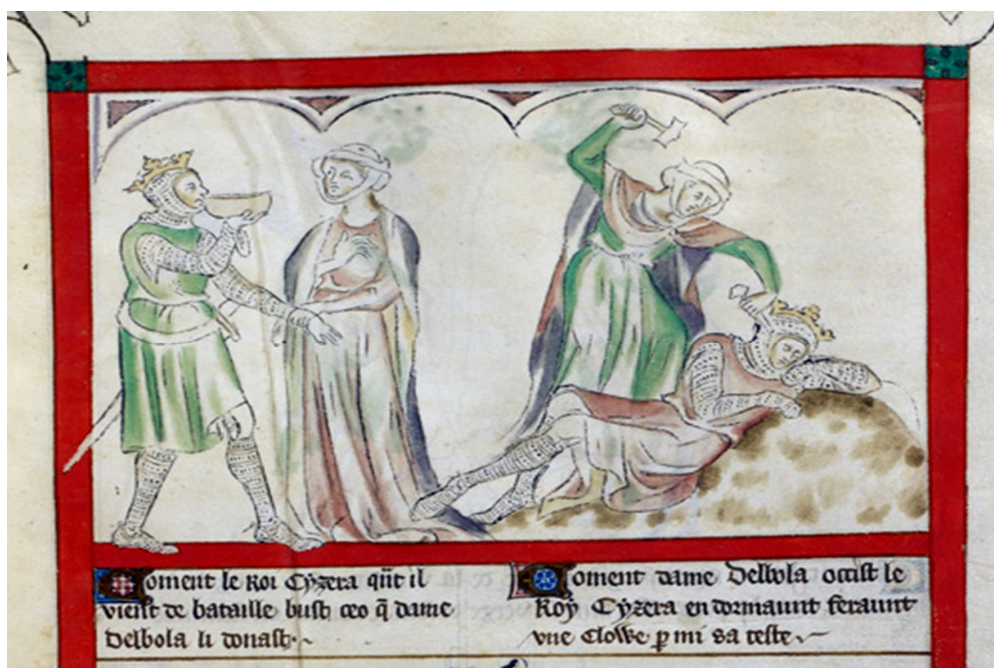 Coment le Roi Cyzera qnt il
vient de bataille bust ceo q̄ dame
Delbola li donast·
Coment dame Delbola occist le
Roy Cyzera en dormaunt feraunt
vne Clowe ꝑ mi sa teste